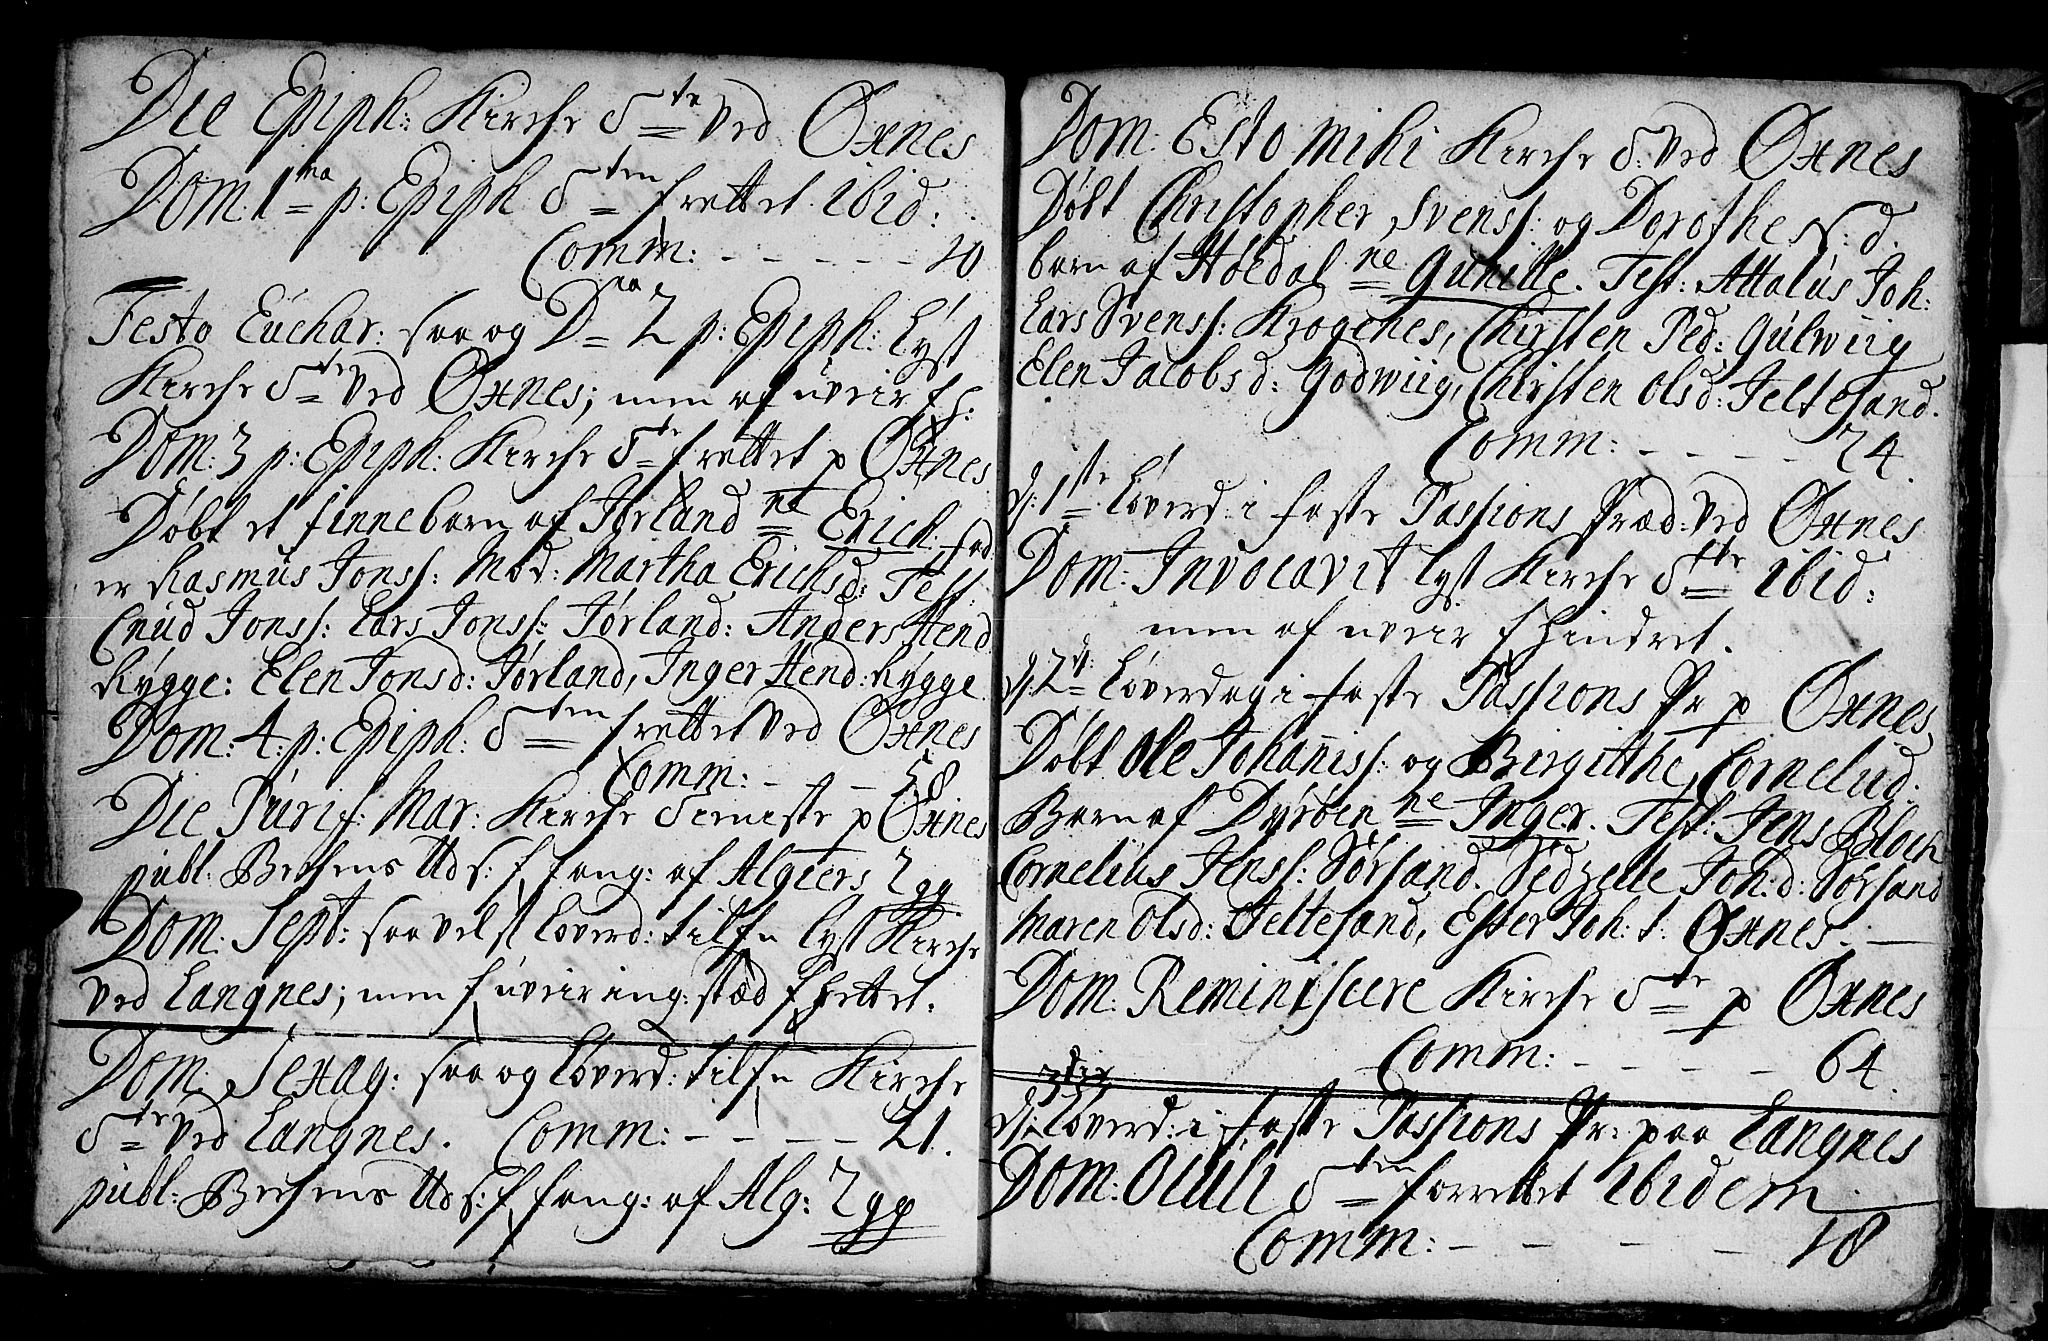 Die Epiph: Kirche S.te ved Øxnes
Dom. 1ma p: Epiph S.ten frettet ibid:
Comm: - - - - - 20
Festo Euchar: saa og D.na 2 p: Epiph: lyst
Kirche S.te ved Øxnes; men af uveir f h:
Dom: 3 p: Epiph: Kirche S.te frettet p Øxnes
Døbt et finnebarn af Jørland ne Erich. fad:
er Rasmus Jonss: Mod: Martha Erichsd: Test
Cnud Jonss: Lars Jonss: Jørland: Anders Hend
Rygge: Elen Jonsd: Jørland, Inger Hend: Rygge
Dom: 4: p: Epiph: S.ten frettet ved Øxnes
Comm: - - - 58
Die Purif: Mar: Kirche Semeste p Øxnes
publ: Bechens Uds: f fang: af Algiers 2 gg
Dom: Sept: saavelsl løverd: tilfn lyst Kirche
ved Langnes; men f uveir ing: stæd f hettet.
Dom. Sexag: saa og løverd: tilfn Kirche
S.te ved Langnes. Comm: - - - - 21.
publ: Bechens Uds: f fang: af Alg: 2 gg
Dom: Esto mihi Kirche S: ved Øxnes
Døbt Christopher Svenss: og Dorothe S: d.
barn af Høedal ne Gunille. Test: Attalus Joh:
Lars Svenss: Krogenes, Chirsten Ped: Gulwiig
Elen Jacobsd: Godwiig, Chirsten Olsd: Teltesand.
Comm: - - - - 24.
d: 1ste løverd: i faste Passions Præd: ved Øxnes
Dom: Invocavit lyst Kirche S.te ibid:
men af uveir f hindret.
d: 2d: løverdag i faste Passions Pr p Øxnes
Døbt Ole Johaniss: og Birgitthe Cornelud.
Barn af Dyrøen ne Inger. Test: Jens Bloch
Cornelius Jenss: Sørsand. Sidzelle Joh:d: Sørsand
Maren Olsd: Teltesand, Ester Joh: t: Øxnes. -
Dom: Reminiscere Kirche S.te p Øxnes
Comm: - - - - 64.
d: 3die løverd: i faste Passions Pr: paa Langnes
Dom: Oculi S.ten forrettet ibidem.
Comm: - - - - 18